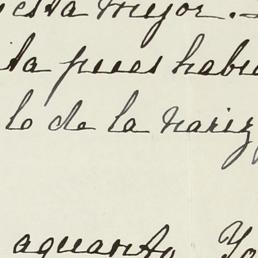 esta mejor.
ta pues habi
lo de la nariz
aguanto Yo